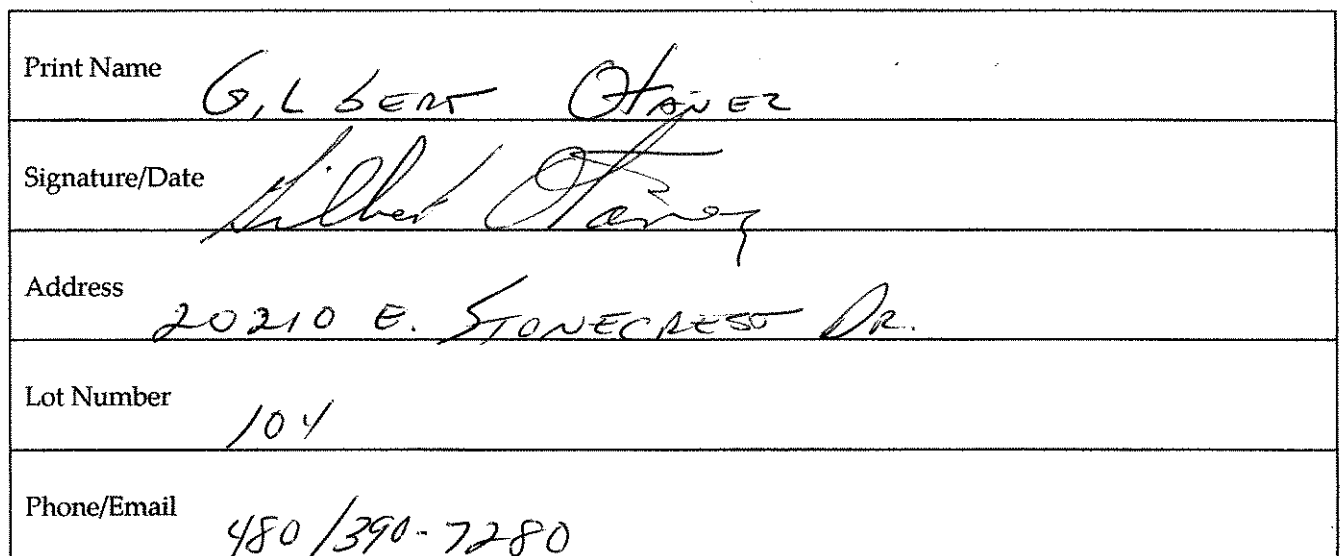 Print Name GILBERT OTAÑEZ
Signature/Date Gilbert Otañez
Address 20210 E. STONECREST DR.
Lot Number 104
Phone/Email 480/390-7280